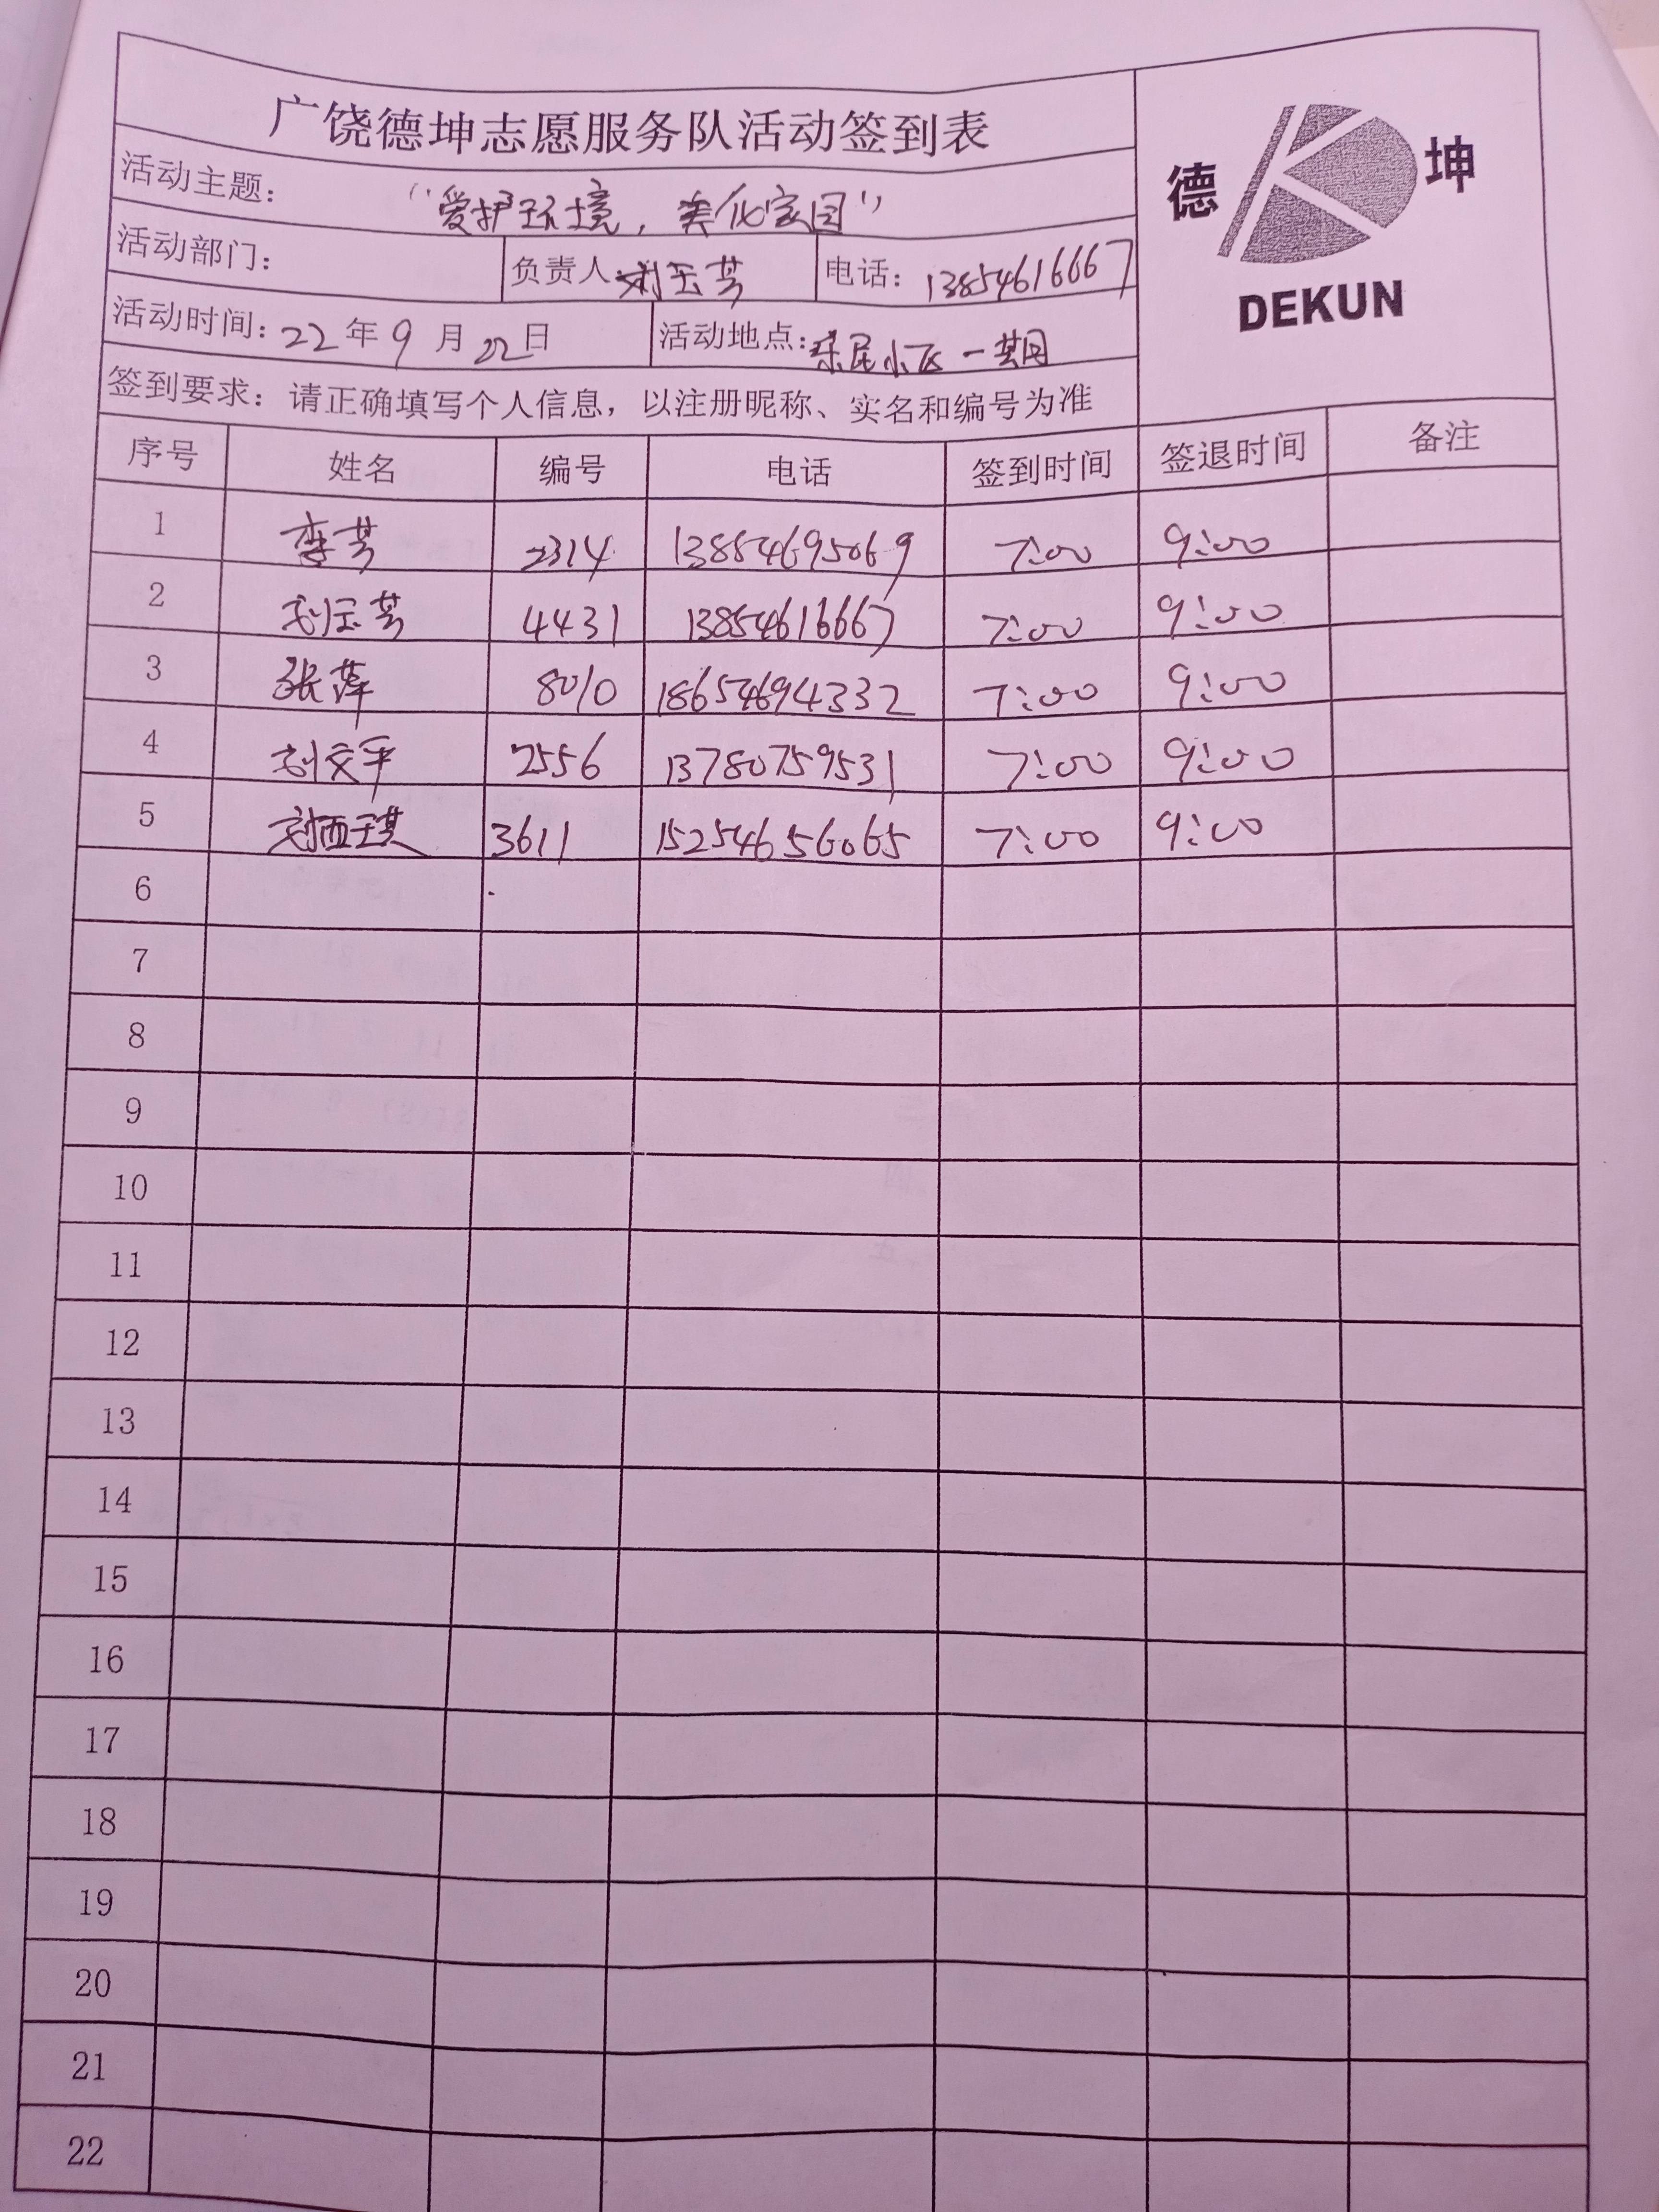 广饶德坤志愿服务队活动签到表
德 坤
DEKUN
活动主题： “爱护环境，美化家园”
活动部门： 负责人：刘玉芳 电话：13854616667
活动时间：22年9月22日 活动地点：乐民小区一期
签到要求：请正确填写个人信息，以注册昵称、实名和编号为准
序号 姓名 编号 电话 签到时间 签退时间 备注
1 芳 2314 13884695069 7:00 9:00
2 刘玉芳 4431 13854616667 7:00 9:00
3 张萍 8010 18654694332 7:00 9:00
4 刘文平 2556 13780759531 7:00 9:00
5 3611 15254656065 7:00 9:00
6
7
8
9
10
11
12
13
14
15
16
17
18
19
20
21
22